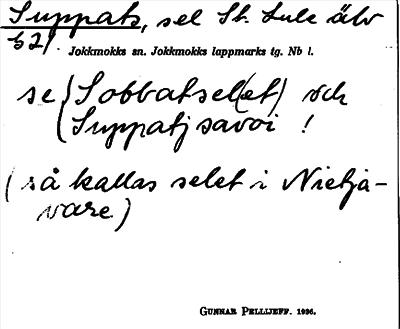 Suppats, sel St. Lule älv
b2). Jokkmokks sn. Jokkmokks lappmarks tg. Nb l.
se {Sobbatsel(et) och
{Suppatjsavoi !
(så kallas selet i Nietja-
vare)
GUNNAR PELLIJEFF. 1936.